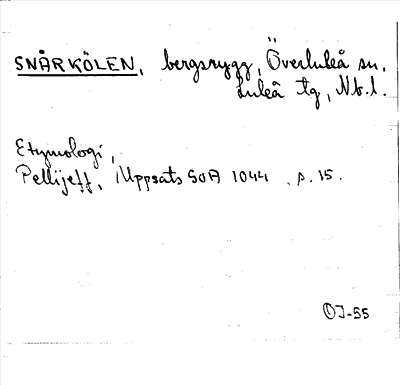 SNÅRKÖLEN, bergsrygg, Överluleå sn.
Luleå tg, Nb.l.
Etymologi,
Pellijeff, Uppsats SOA 1044 s. 15.
OJ-55